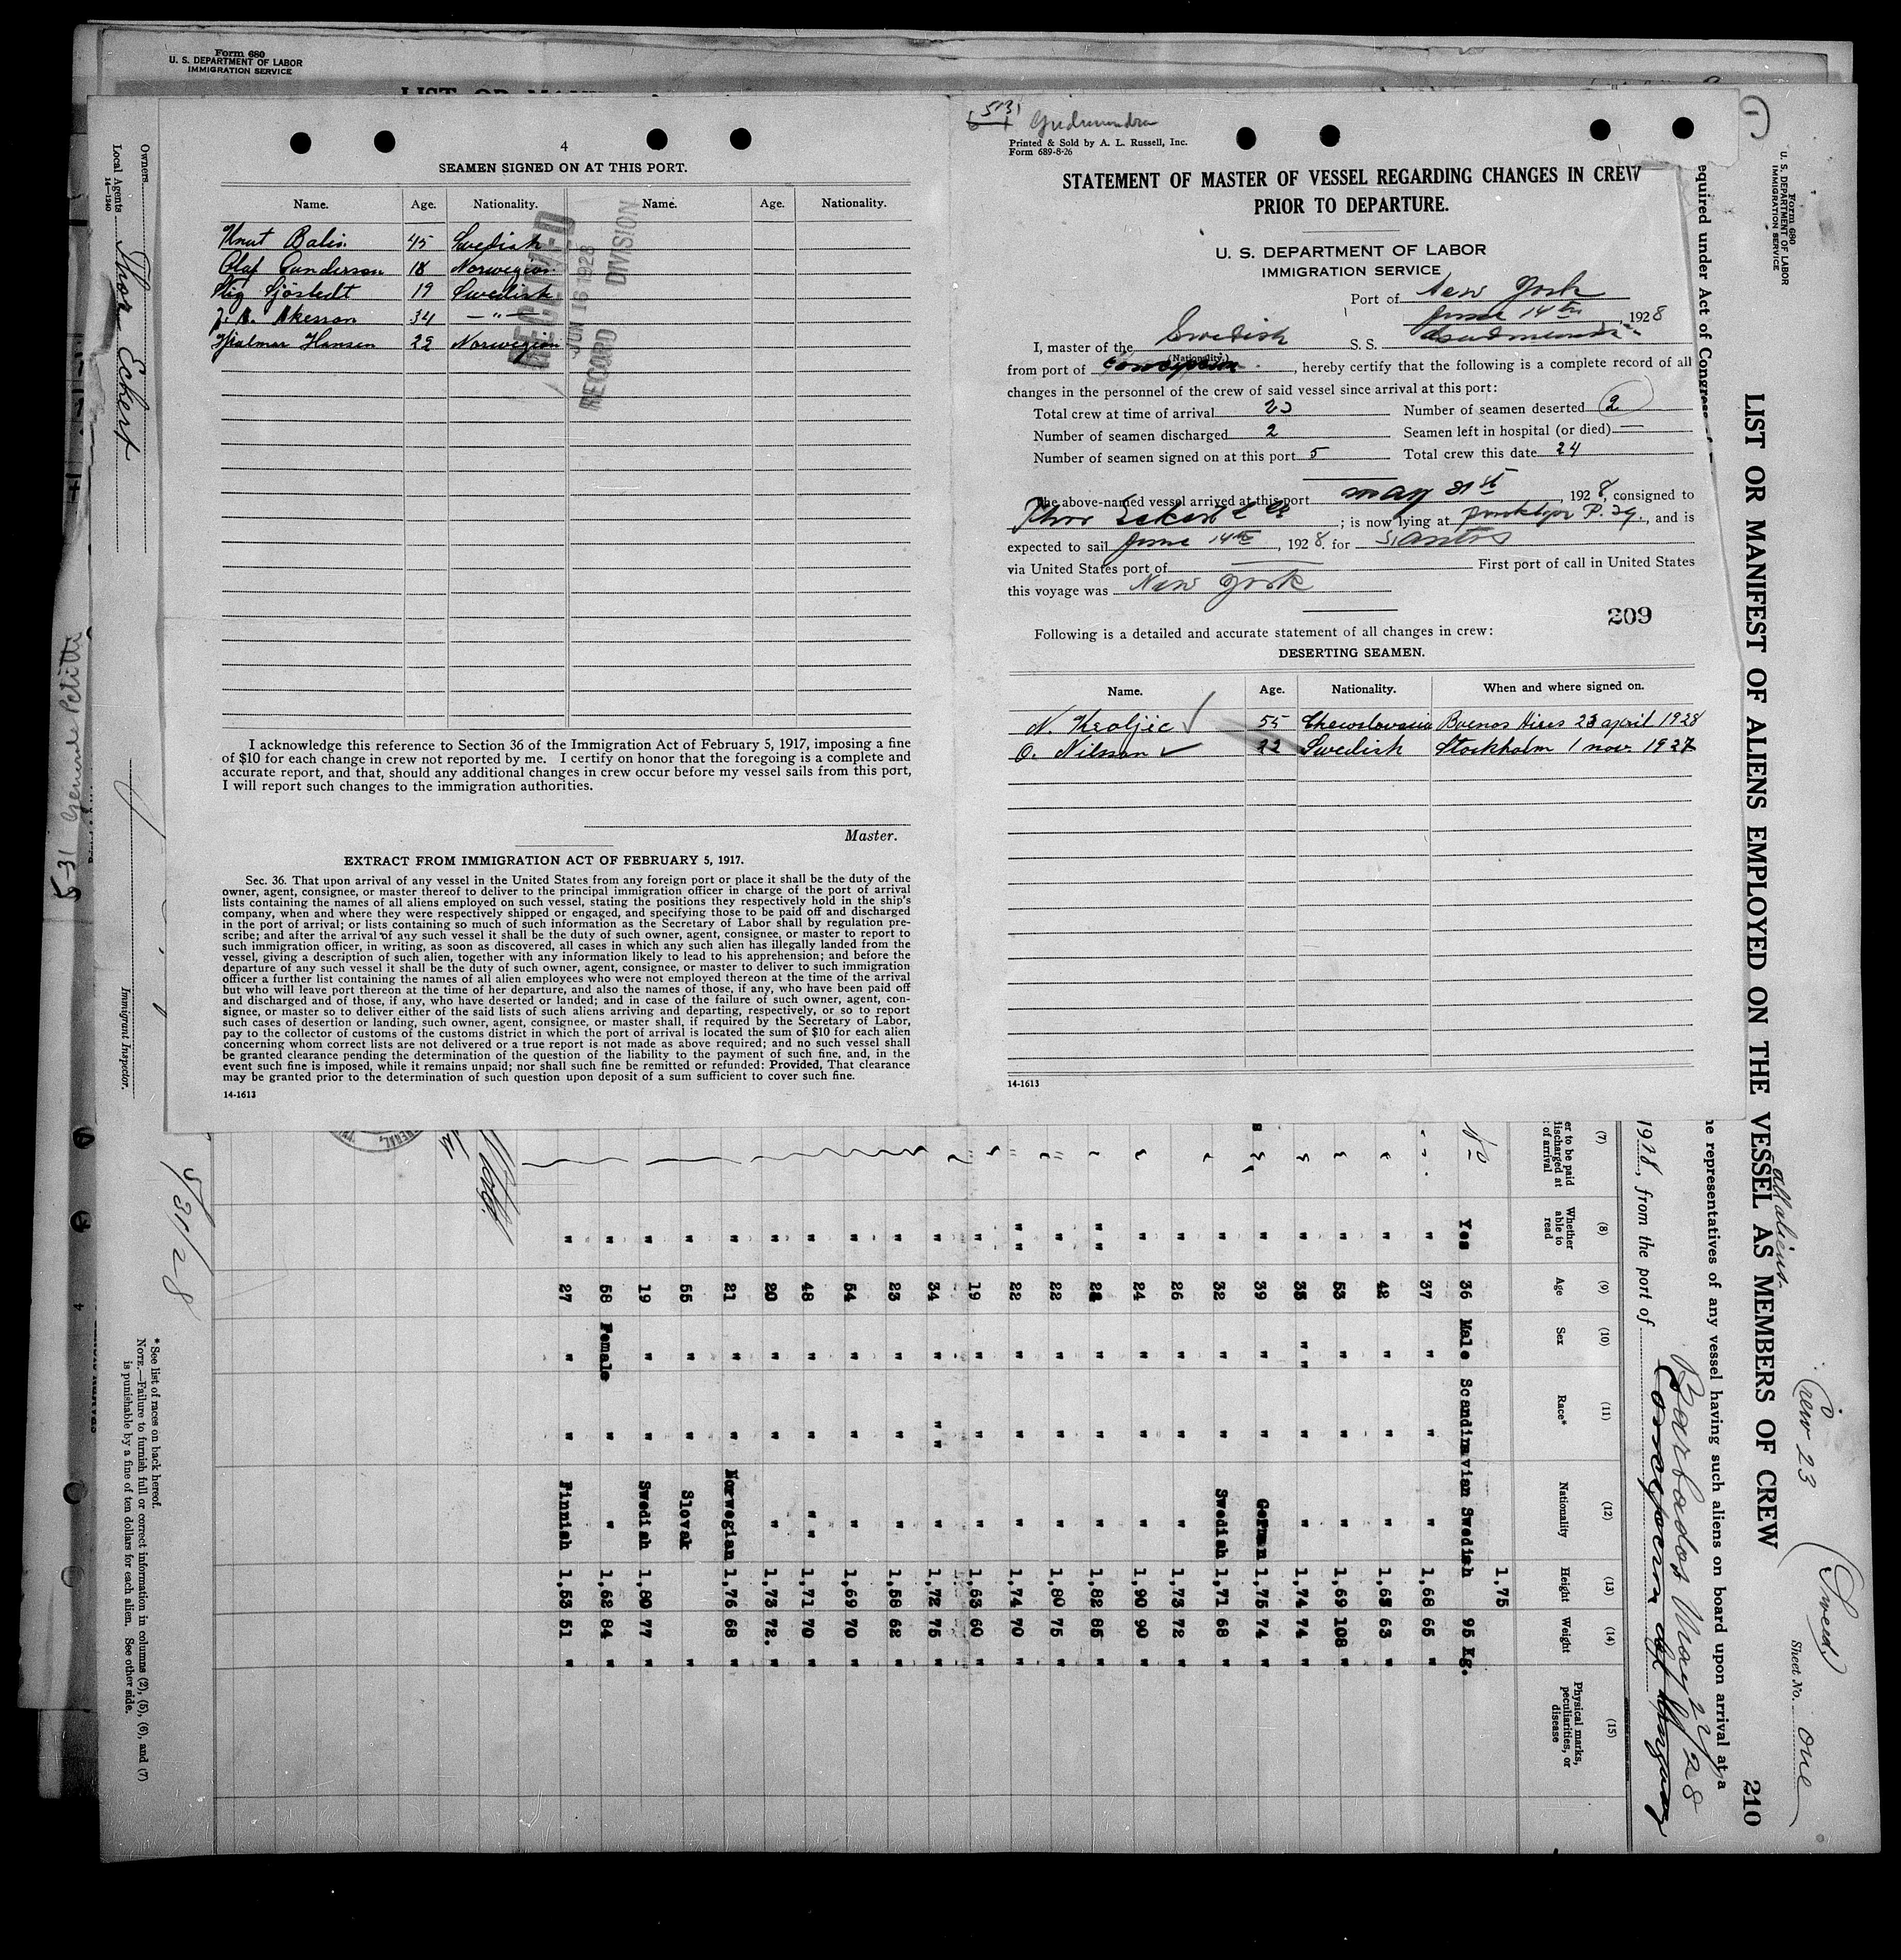 Form 680
U. S. DEPARTMENT OF LABOR
IMMIGRATION SERVICE
4
SEAMEN SIGNED ON AT THIS PORT.
Name. Age. Nationality. Name. Age. Nationality.
Knut Balin 45 Swedish
Olaf Gunderson 18 Norwegian
Stig Sjöstedt 19 Swedish
Akesson 34 — " —
Hjalmar Hansen 22 Norwegian
RECEIVED
JUN 16 1928
RECORD DIVISION
I acknowledge this reference to Section 36 of the Immigration Act of February 5, 1917, imposing a fine
of $10 for each change in crew not reported by me. I certify on honor that the foregoing is a complete and
accurate report, and that, should any additional changes in crew occur before my vessel sails from this port,
I will report such changes to the immigration authorities.
Master.
EXTRACT FROM IMMIGRATION ACT OF FEBRUARY 5, 1917.
Sec. 36. That upon arrival of any vessel in the United States from any foreign port or place it shall be the duty of the
owner, agent, consignee, or master thereof to deliver to the principal immigration officer in charge of the port of arrival
lists containing the names of all aliens employed on such vessel, stating the positions they respectively hold in the ship's
company, when and where they were respectively shipped or engaged, and specifying those to be paid off and discharged
in the port of arrival; or lists containing so much of such information as the Secretary of Labor shall by regulation pre-
scribe; and after the arrival of any such vessel it shall be the duty of such owner, agent, consignee, or master to report to
such immigration officer, in writing, as soon as discovered, all cases in which any such alien has illegally landed from the
vessel, giving a description of such alien, together with any information likely to lead to his apprehension; and before the
departure of any such vessel it shall be the duty of such owner, agent, consignee, or master to deliver to such immigration
officer a further list containing the names of all alien employees who were not employed thereon at the time of the arrival
but who will leave port thereon at the time of her departure, and also the names of those, if any, who have been paid off
and discharged and of those, if any, who have deserted or landed; and in case of the failure of such owner, agent, con-
signee, or master so to deliver either of the said lists of such aliens arriving and departing, respectively, or so to report
such cases of desertion or landing, such owner, agent, consignee, or master shall, if required by the Secretary of Labor,
pay to the collector of customs of the customs district in which the port of arrival is located the sum of $10 for each alien
concerning whom correct lists are not delivered or a true report is not made as above required; and no such vessel shall
be granted clearance pending the determination of the question of the liability to the payment of such fine, and, in the
event such fine is imposed, while it remains unpaid; nor shall such fine be remitted or refunded: Provided, That clearance
may be granted prior to the determination of such question upon deposit of a sum sufficient to cover such fine.
14-1613
Gudmundra
Printed & Sold by A. L. Russell, Inc.
Form 689-8-26
STATEMENT OF MASTER OF VESSEL REGARDING CHANGES IN CREW
PRIOR TO DEPARTURE.
U. S. DEPARTMENT OF LABOR
IMMIGRATION SERVICE
Port of New York
June 14th, 1928
I, master of the Swedish S. S. Gudmundra
(Nationality.)
from port of Concepcion, hereby certify that the following is a complete record of all
changes in the personnel of the crew of said vessel since arrival at this port:
Total crew at time of arrival 23 Number of seamen deserted 2
Number of seamen discharged 2 Seamen left in hospital (or died) —
Number of seamen signed on at this port 5 Total crew this date 24
The above-named vessel arrived at this port may 31st, 1928, consigned to
Thor Eckert & Co; is now lying at P. 29, and is
expected to sail June 14th, 1928. for Santos
via United States port of First port of call in United States
this voyage was New York
209
Following is a detailed and accurate statement of all changes in crew:
DESERTING SEAMEN.
Name. Age. Nationality. When and where signed on.
N. Kraljic 55 Buenos Aires 23 april 1928
O. Nilsson 22 Swedish Stockholm 1 nov. 1927
14-1613
Form 680
U. S. DEPARTMENT OF LABOR
IMMIGRATION SERVICE
Crew 23 (Swed)
Sheet No. one
LIST OR MANIFEST OF ALIENS EMPLOYED ON THE VESSEL AS MEMBERS OF CREW
210
all aliens
equired under Act of Congress
he representatives of any vessel having such aliens on board upon arrival at a
Barbados May 22/28
1928, from the port of Concepcion del Uruguay
(7) (8) (9) (10) (11) (12) (13) (14) (15)
er to be paid discharged at of arrival
Whether able to read
Age
Sex
Race*
Nationality
Height
Weight
Physical marks, peculiarities, or disease
1,75
No Yes 36 Male Scandinavian Swedish 95 Kg.
" 37 " " " 1,68 65 "
" 42 " " " 1,63 63 "
" 53 " " " 1,69 108 "
" 35 " " " " 1,74 74 "
" 39 " " German 1,75 74 "
" 32 " " Swedish 1,71 68 "
" 26 " " " 1,73 72 "
" 24 " " " 1,90 90 "
" " 28 " " " 1,82 85 "
" 22 " " " 1,80 75 "
" " 22 " " " 1,74 70 "
" 19 " " " 1,63 60 "
" 34 " " " " 1,72 75 "
" 23 " " " 1,58 62 "
" 54 " " " 1,69 70 "
" 48 " " " " 1,71 70 "
" 20 " " " 1,73 72. "
" 21 " " Norwegian 1,76 68 "
" 55 " " Slovak "
" 19 " " Swedish 1,80 77 "
" 58 Female " " 1,62 84 "
" 27 " " Finnish 1,53 51 "
5/31/28
* See list of races on back hereof.
NOTE.—Failure to furnish full or correct information in columns (2), (5), (6), and (7)
is punishable by a fine of ten dollars for each alien. See other side.
Owners
Local Agents Thor Eckert
14—1240
Immigrant Inspector.
5-31